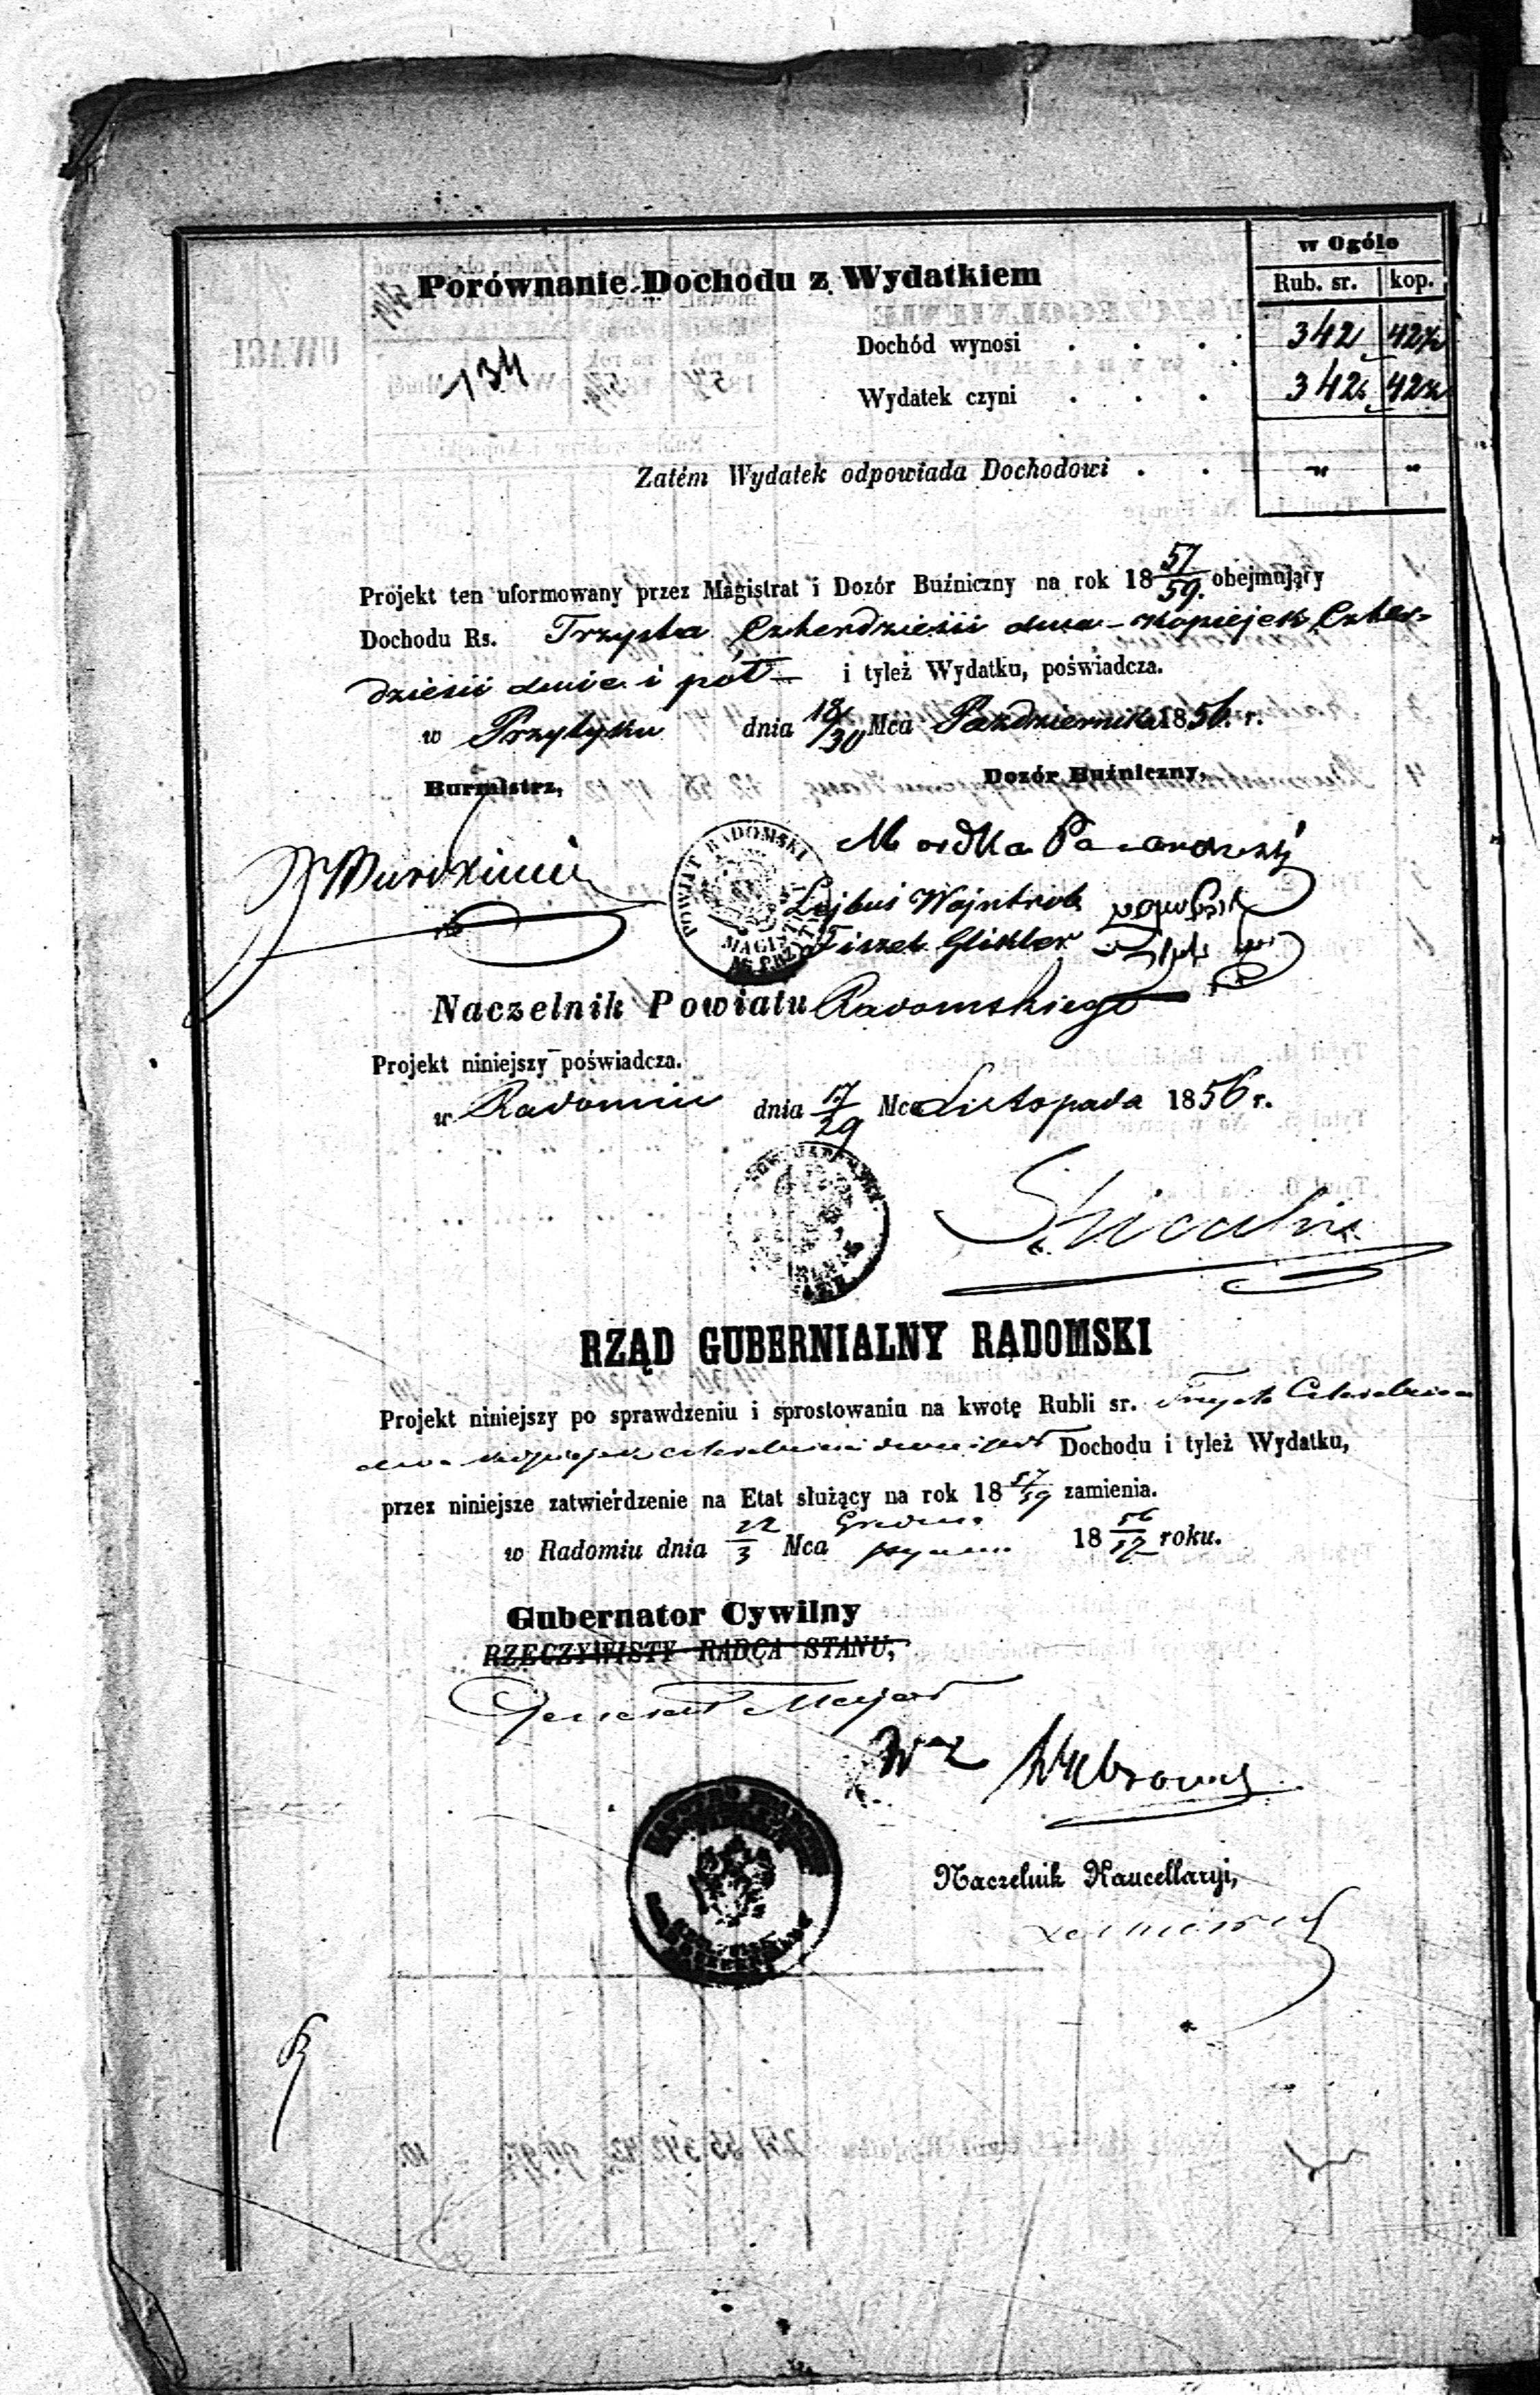 w Ogóle
Porównanie Dochodu z Wydatkiem
Rub. sr. kop.
Dochód wynosi . . . . 342 42½
134
Wydatek czyni . . . 342 42½
Zatém Wydatek odpowiada Dochodowi . . " "
Projekt ten uformowany przez Magistrat i Dozór Buźniczny na rok 18 57/59 obejmujący
Dochodu Rs. Trzysta Czterdzieści dwa - Kopiejek Czter-
dzieści dwie i pół - i tyleż Wydatku, poświadcza.
w Przytyku dnia 18/30 Mca Października 1856 r.
Burmistrz, Dozór Buźniczny,
POWIAT RADOMSKI
MAGIST
Mordka
Lejbuś Wajntrob
Fiszel Glikler
Naczelnik Powiatu Radomskiego
Projekt niniejszy poświadcza.
w Radomiu dnia 17/29 Mca Listopada 1856 r.
RZĄD GUBERNIALNY RADOMSKI
Projekt niniejszy po sprawdzeniu i sprostowaniu na kwotę Rubli sr. Trzysta Czterdzieści
dwa kopiejek czterdzieści dwie i pół Dochodu i tyleż Wydatku,
przez niniejsze zatwierdzenie na Etat służący na rok 18 57/59 zamienia.
w Radomiu dnia 22/3 Mca Grudnia 18 56/57 roku.
Gubernator Cywilny
RZECZYWISTY RADCA STANU,
Generał Major
Naczelnik Kancellaryi,